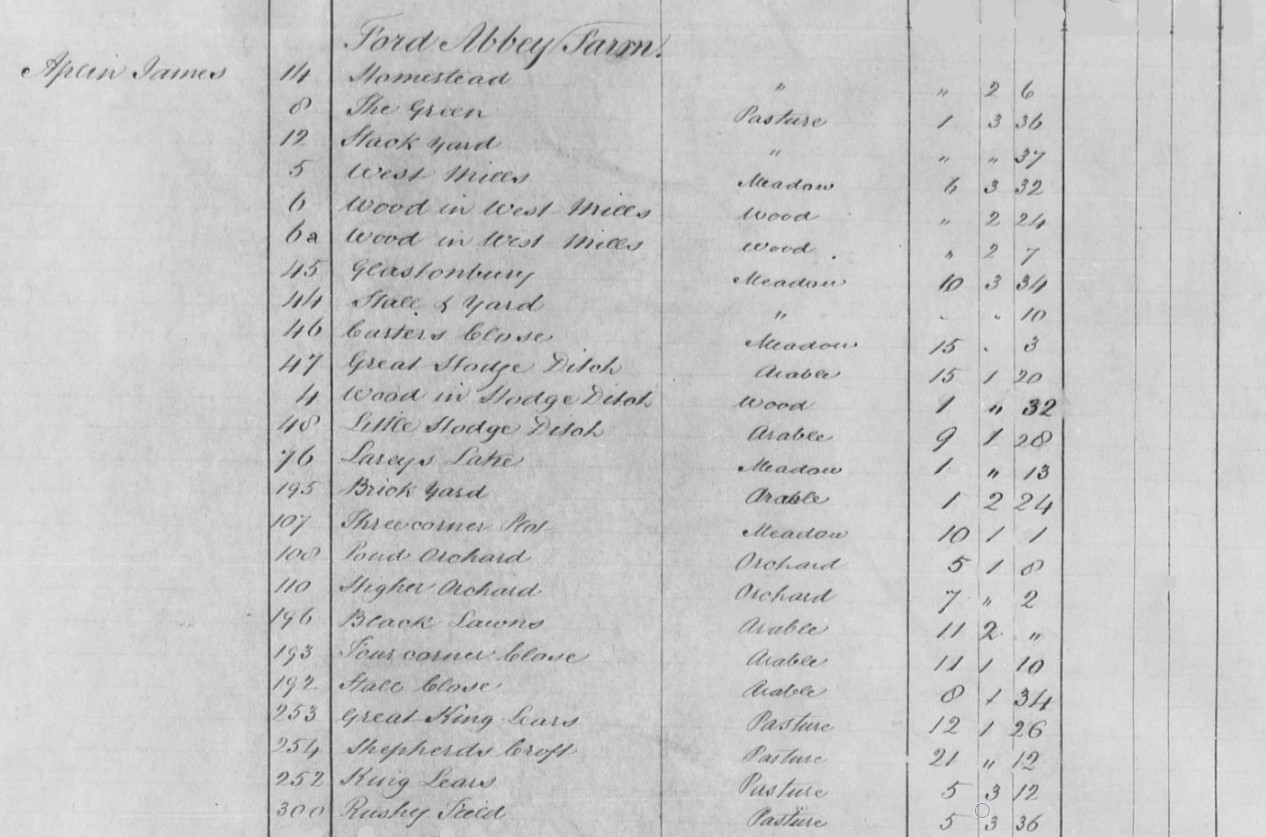 Ford Abbey Farm
Aplin James 14 Homestead " " 2 6
8 The Green Pasture 1 3 36
12 Stack Yard " " " 37
5 West Mills Meadow 6 3 32
6 Wood in West Mills Wood " 2 24
6a Wood in West Mills Wood " 2 7
45 Glastonbury Meadow 10 3 34
44 Stall & Yard " " " 10
46 Carters Close Meadow 15 . 3
47 Great Hodge Ditch Arable 15 1 20
4 Wood in Hodge Ditch Wood 1 " 32
48 Little Hodge Ditch Arable 9 1 28
76 Lake Meadow 1 " 13
195 Brick Yard Arable 1 2 24
107 Three corner Plot Meadow 10 1 1
108 Pond Orchard Orchard 5 1 8
110 Higher Orchard Orchard 7 " 2
196 Black Lawns Arable 11 2 "
193 Four corner Close Arable 11 1 10
192 Stall Close Arable 8 1 34
253 Great King Lears Pasture 12 1 26
254 Shepherds Croft Pasture 21 " 12
252 King Lears Pasture 5 3 12
300 Rushy Field Pasture 5 3 36